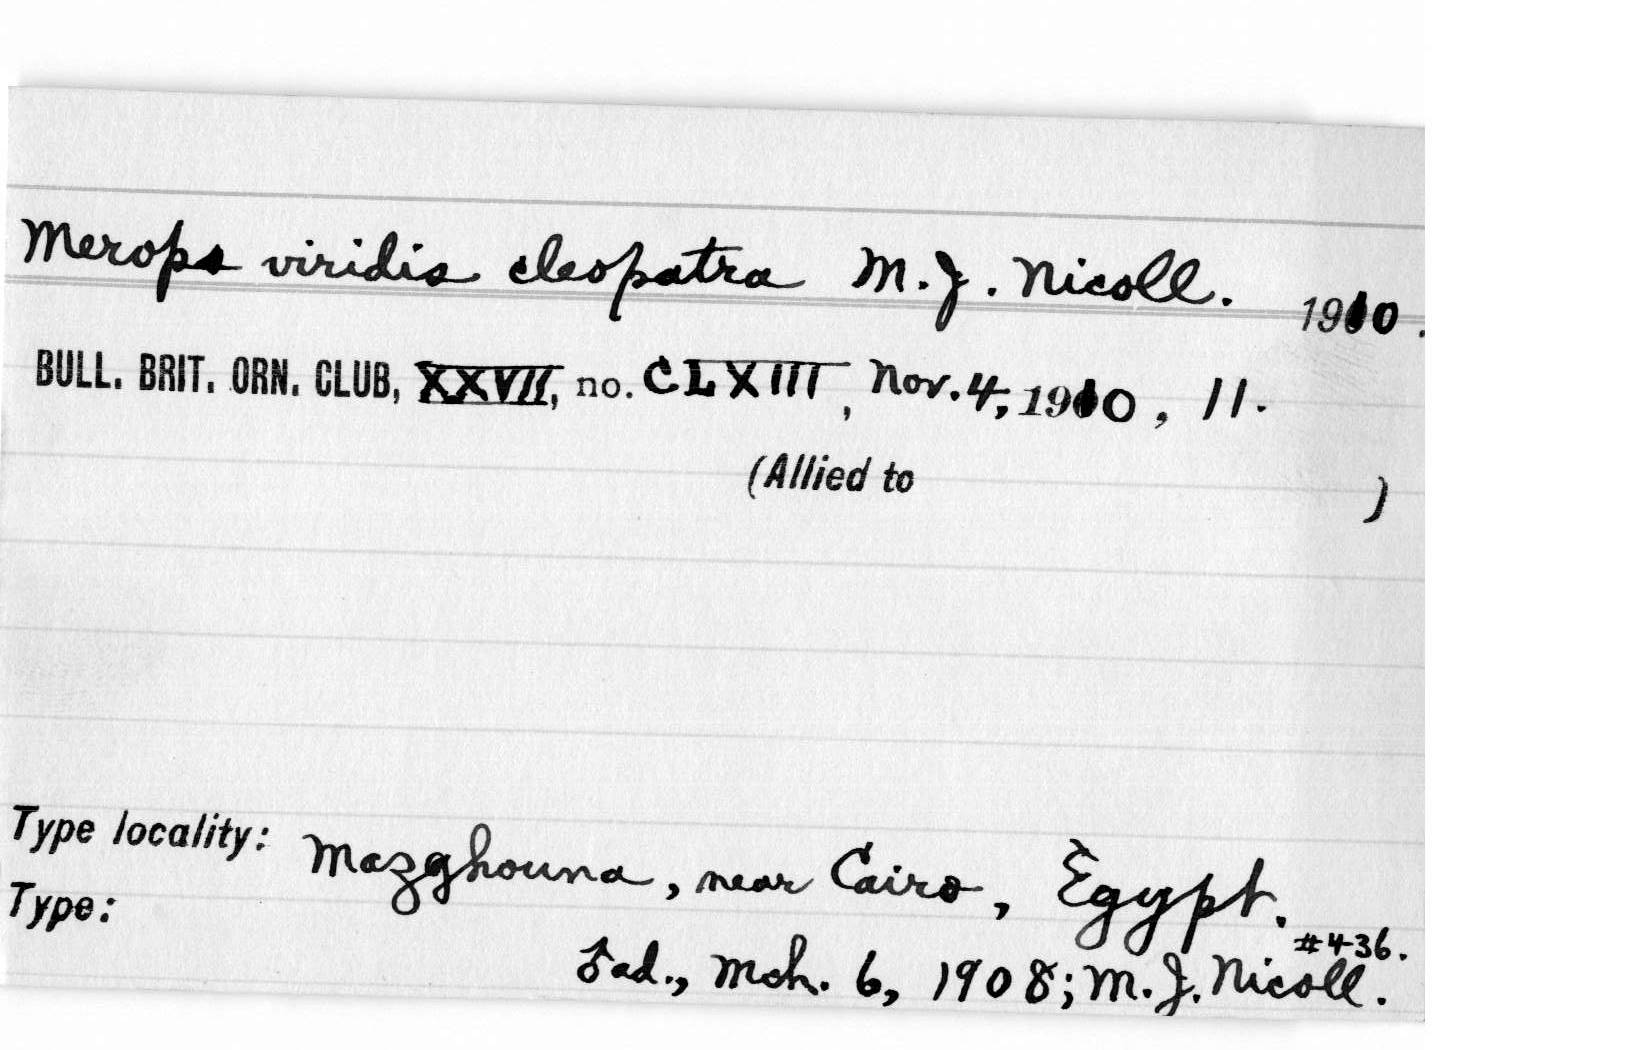 Merops viridis cleopatra M.J. Nicoll. 1910.
BULL. BRIT. ORN. CLUB, XXVII, no. CLXIII, Nov. 4, 1910, 11.
(Allied to )
Type locality: Mazghouna, near Cairo, Egypt.
Type: #436.
♂ ad., Mch. 6, 1908; M.J. Nicoll.